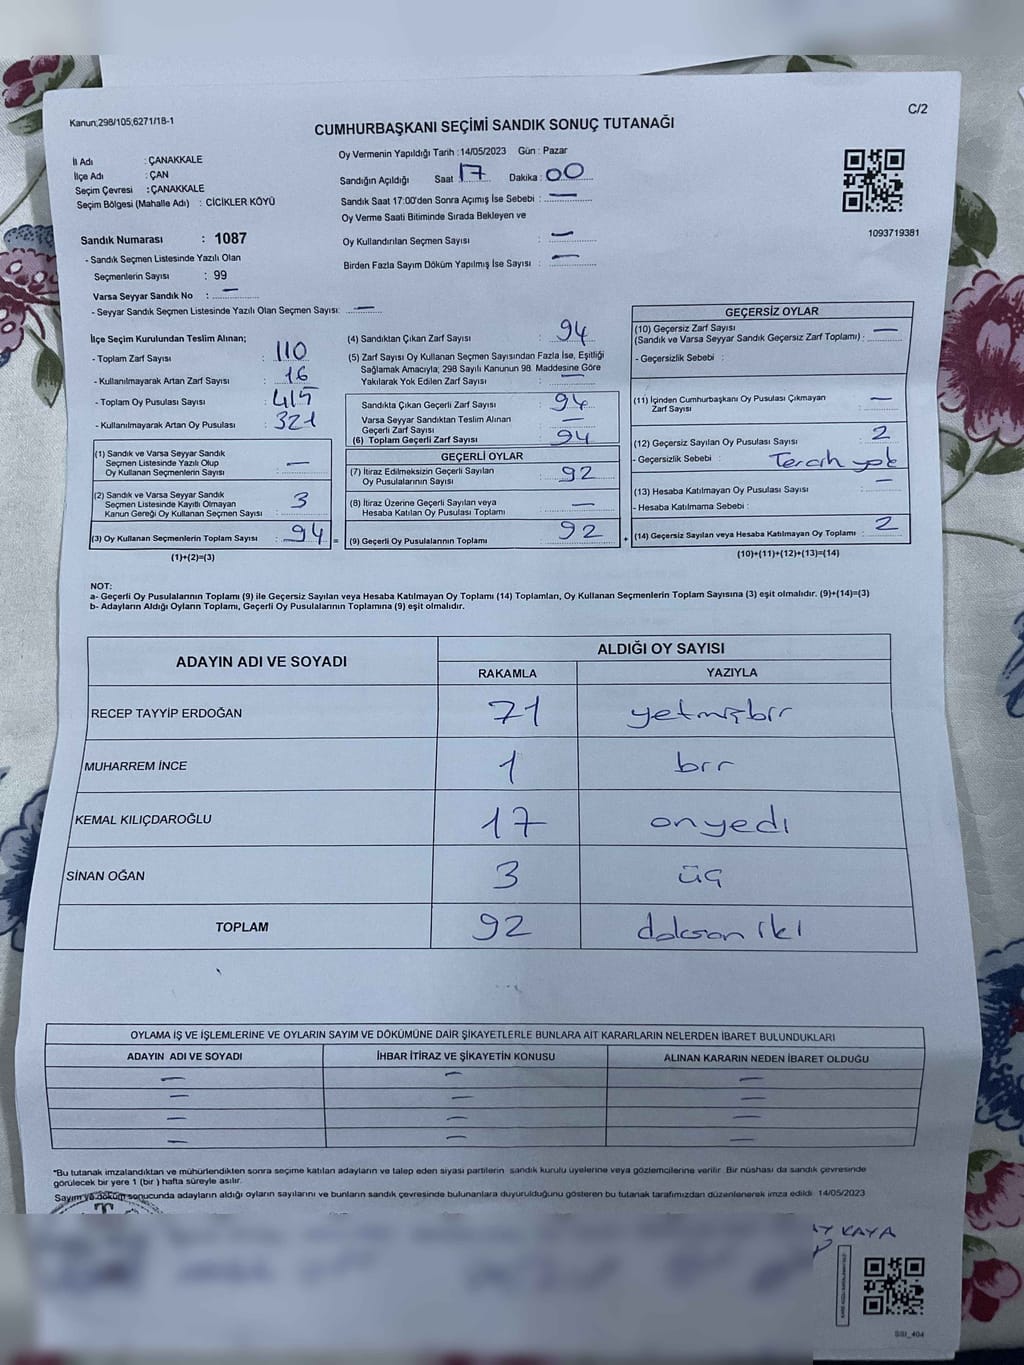 Kanun;298/105,6271/18-1
C/2
CUMHURBAŞKANI SEÇİMİ SANDIK SONUÇ TUTANAĞI
İl Adı : ÇANAKKALE
İlçe Adı : ÇAN
Seçim Çevresi : ÇANAKKALE
Seçim Bölgesi (Mahalle Adı) : CİCİKLER KÖYÜ
Sandık Numarası : 1087
- Sandık Seçmen Listesinde Yazılı Olan
Seçmenlerin Sayısı : 99
Varsa Seyyar Sandık No : —
- Seyyar Sandık Seçmen Listesinde Yazılı Olan Seçmen Sayısı: —
Oy Vermenin Yapıldığı Tarih : 14/05/2023 Gün : Pazar
Sandığın Açıldığı Saat : 17 Dakika : 00
Sandık Saat 17:00'den Sonra Açımış İse Sebebi : —
Oy Verme Saati Bitiminde Sırada Bekleyen ve
Oy Kullandırılan Seçmen Sayısı : —
Birden Fazla Sayım Döküm Yapılmış İse Sayısı : —
1093719381
İlçe Seçim Kurulundan Teslim Alınan;
- Toplam Zarf Sayısı : 110
- Kullanılmayarak Artan Zarf Sayısı : 16
- Toplam Oy Pusulası Sayısı : 415
- Kullanılmayarak Artan Oy Pusulası : 321
(1) Sandık ve Varsa Seyyar Sandık
Seçmen Listesinde Yazılı Olup
Oy Kullanan Seçmenlerin Sayısı : —
(2) Sandık ve Varsa Seyyar Sandık
Seçmen Listesinde Kayıtlı Olmayan
Kanun Gereği Oy Kullanan Seçmen Sayısı : 3
(3) Oy Kullanan Seçmenlerin Toplam Sayısı : 94 =
(1)+(2)=(3)
(4) Sandıktan Çıkan Zarf Sayısı : 94
(5) Zarf Sayısı Oy Kullanan Seçmen Sayısından Fazla İse, Eşitliği
Sağlamak Amacıyla; 298 Sayılı Kanunun 98. Maddesine Göre
Yakılarak Yok Edilen Zarf Sayısı : —
Sandıkta Çıkan Geçerli Zarf Sayısı : 94
Varsa Seyyar Sandıktan Teslim Alınan
Geçerli Zarf Sayısı :
(6) Toplam Geçerli Zarf Sayısı : 94
GEÇERLİ OYLAR
(7) İtiraz Edilmeksizin Geçerli Sayılan
Oy Pusulalarının Sayısı : 92
(8) İtiraz Üzerine Geçerli Sayılan veya
Hesaba Katılan Oy Pusulası Toplamı : —
(9) Geçerli Oy Pusulalarının Toplamı : 92 +
GEÇERSİZ OYLAR
(10) Geçersiz Zarf Sayısı
(Sandık ve Varsa Seyyar Sandık Geçersiz Zarf Toplamı) : —
- Geçersizlik Sebebi :
(11) İçinden Cumhurbaşkanı Oy Pusulası Çıkmayan
Zarf Sayısı : —
(12) Geçersiz Sayılan Oy Pusulası Sayısı : 2
- Geçersizlik Sebebi : Tercih yok
(13) Hesaba Katılmayan Oy Pusulası Sayısı : —
- Hesaba Katılmama Sebebi :
(14) Geçersiz Sayılan veya Hesaba Katılmayan Oy Toplamı : 2
(10)+(11)+(12)+(13)=(14)
NOT:
a- Geçerli Oy Pusulalarının Toplamı (9) ile Geçersiz Sayılan veya Hesaba Katılmayan Oy Toplamı (14) Toplamları, Oy Kullanan Seçmenlerin Toplam Sayısına (3) eşit olmalıdır. (9)+(14)=(3)
b- Adayların Aldığı Oyların Toplamı, Geçerli Oy Pusulalarının Toplamına (9) eşit olmalıdır.
ADAYIN ADI VE SOYADI ALDIĞI OY SAYISI
RAKAMLA YAZIYLA
RECEP TAYYİP ERDOĞAN 71 yetmişbir
MUHARREM İNCE 1 bir
KEMAL KILIÇDAROĞLU 17 onyedi
SİNAN OĞAN 3 üç
TOPLAM 92 doksan iki
OYLAMA İŞ VE İŞLEMLERİNE VE OYLARIN SAYIM VE DÖKÜMÜNE DAİR ŞİKAYETLERLE BUNLARA AİT KARARLARIN NELERDEN İBARET BULUNDUKLARI
ADAYIN ADI VE SOYADI İHBAR İTİRAZ VE ŞİKAYETİN KONUSU ALINAN KARARIN NEDEN İBARET OLDUĞU
— — —
— — —
— — —
— — —
*Bu tutanak imzalandıktan ve mühürlendikten sonra seçime katılan adayların ve talep eden siyasi partilerin sandık kurulu üyelerine veya gözlemcilerine verilir. Bir nüshası da sandık çevresinde
görülecek bir yere 1 (bir ) hafta süreyle asılır.
Sayım ve döküm sonucunda adayların aldığı oyların sayılarını ve bunların sandık çevresinde bulunanlara duyurulduğunu gösteren bu tutanak tarafımızdan düzenlenerek imza edildi. 14/05/2023
KAYA
SSI_404